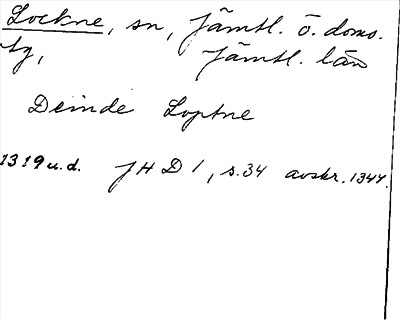 Lockne, sn, Jämtl. ö. doms.
tg, Jämtl. län
Deinde Loptne
1319 u.d. JHD 1, s.34 avskr. 1347.